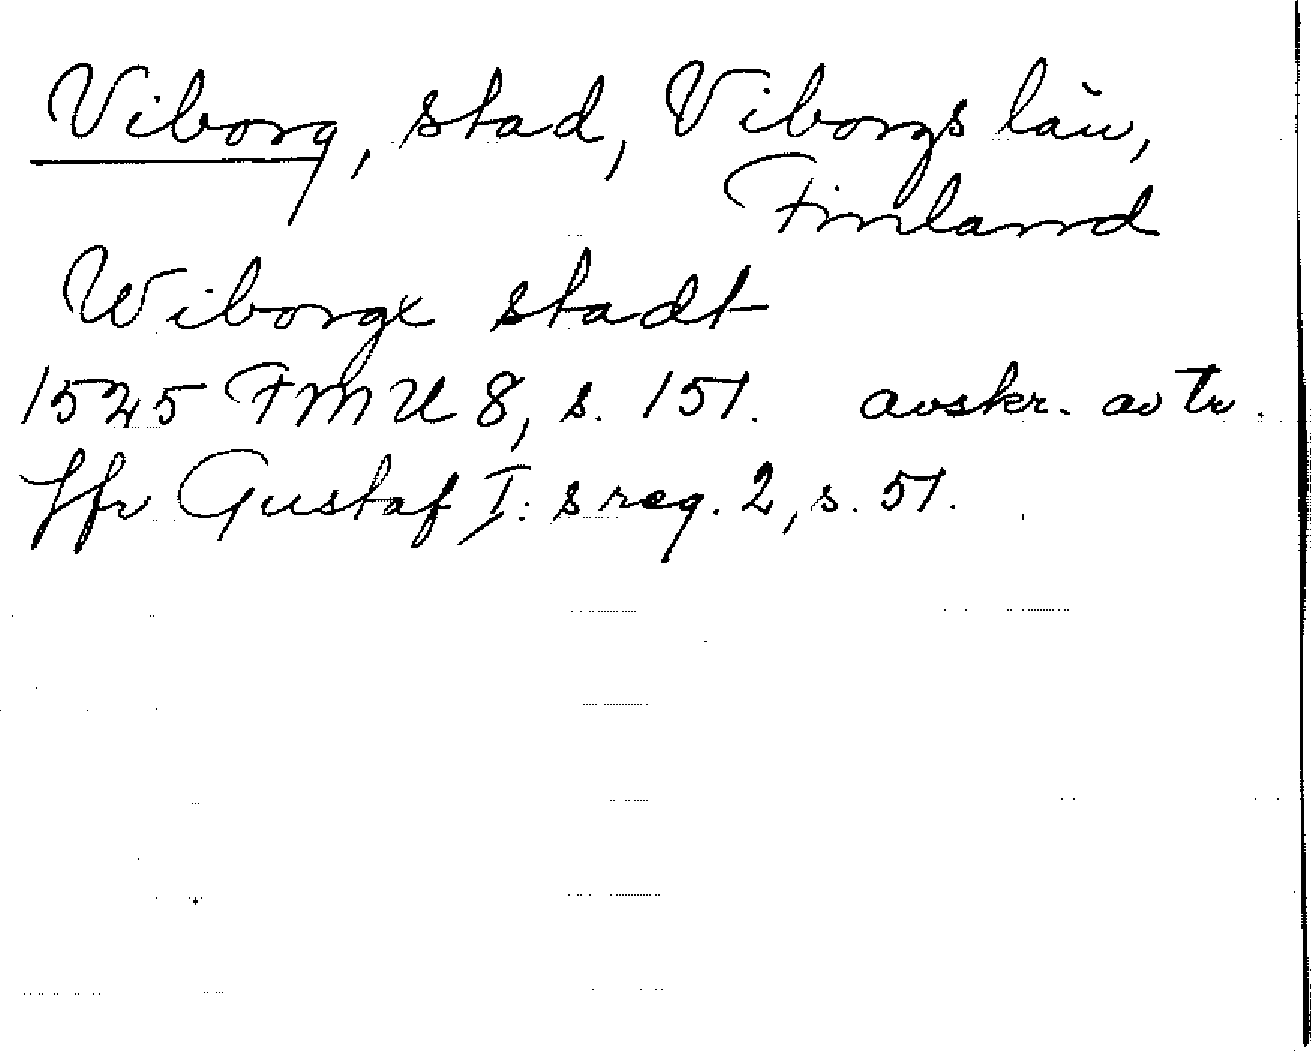 Viborg, stad, Viborgs län,
Finland
Wiborgx stadt
1525 FMU 8, s. 151. avskr. av tr.
Jfr Gustaf I:s reg. 2, s. 51.